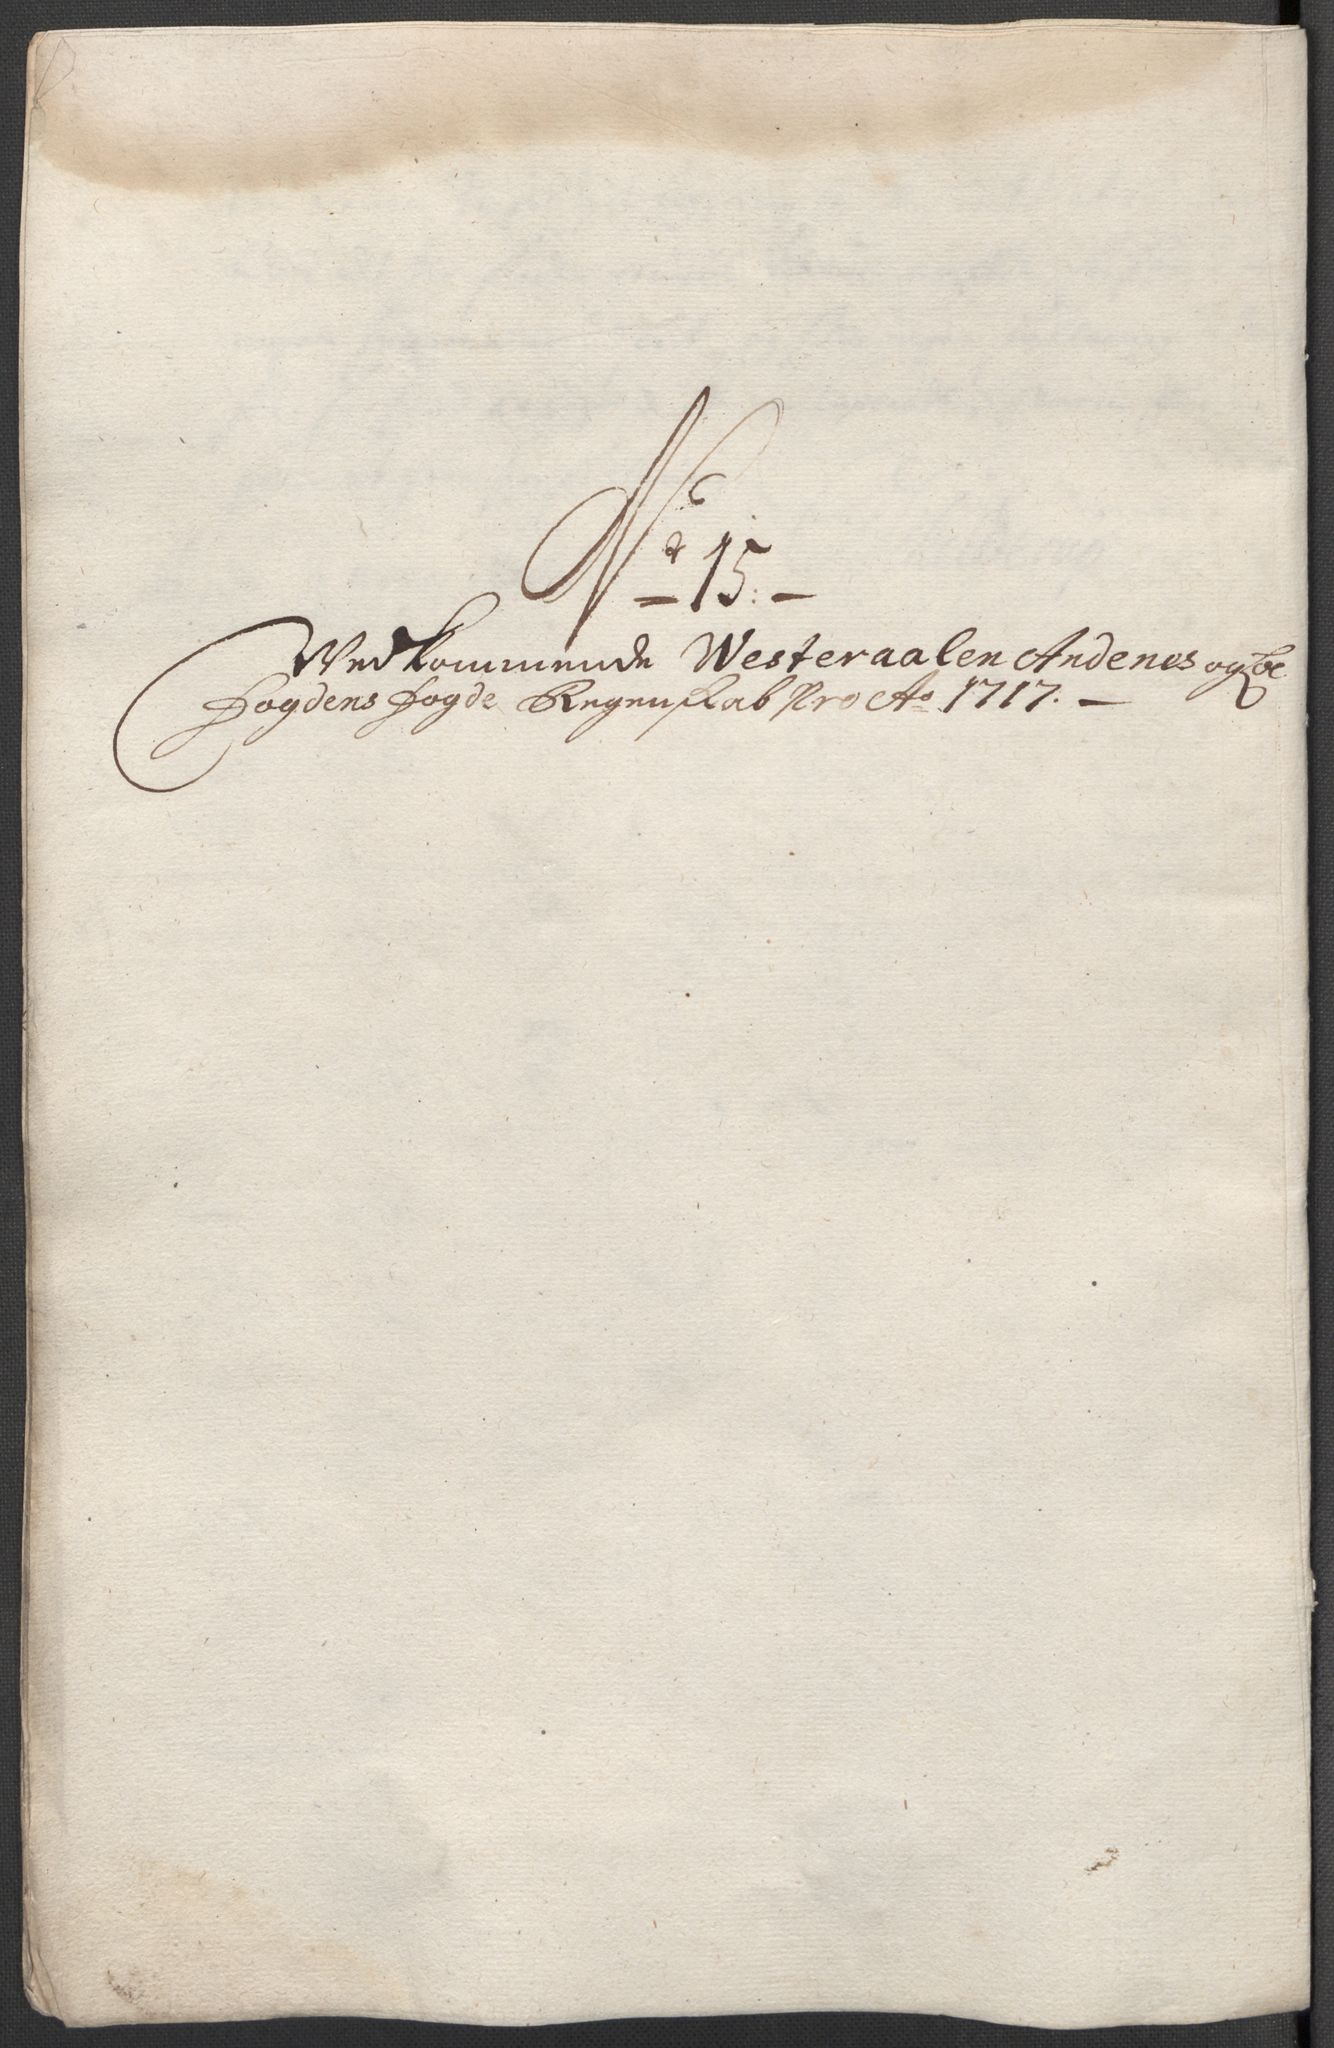 No 15.
Vedkommende Westeraalen Andenes og
Fogdens Fogde Regenskab Pro Ao 1717.